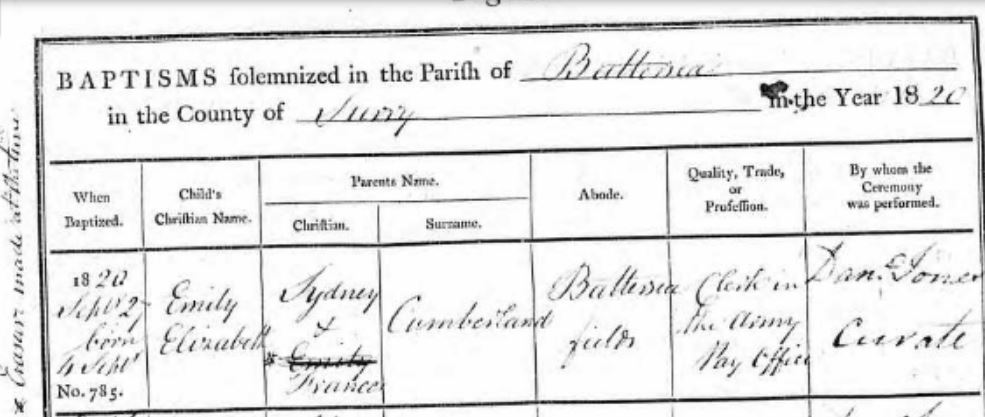 BAPTISMS solemnized in the Parish of Battersea
in the County of Surry in the Year 1820
When Baptized.
Child's Christian Name.
Parents Name.
Christian.
Surname.
Abode.
Quality, Trade, or Profession.
By whom the Ceremony was performed.
1820
Septr 27
born
4 Septr
No. 785.
Emily
Elizabeth
Sydney
&
x Emily
Frances
Cumberland
Battersea
fields
Clerk in
the Army
Pay Office
Danl. Jones
Curate
x Erasure made at the time